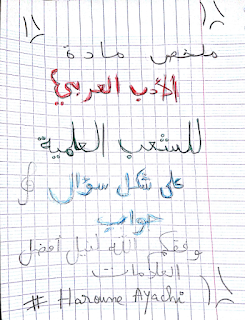 ملخص مادة
الأدب العربي
للشعب العلمية
على شكل سؤال
جواب
وفقكم الله لنيل أفضل
العلامات
# Haroune Ayachi